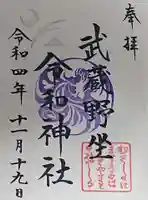 奉拝
武蔵野坐
令和神社
令和四年十一月十九日